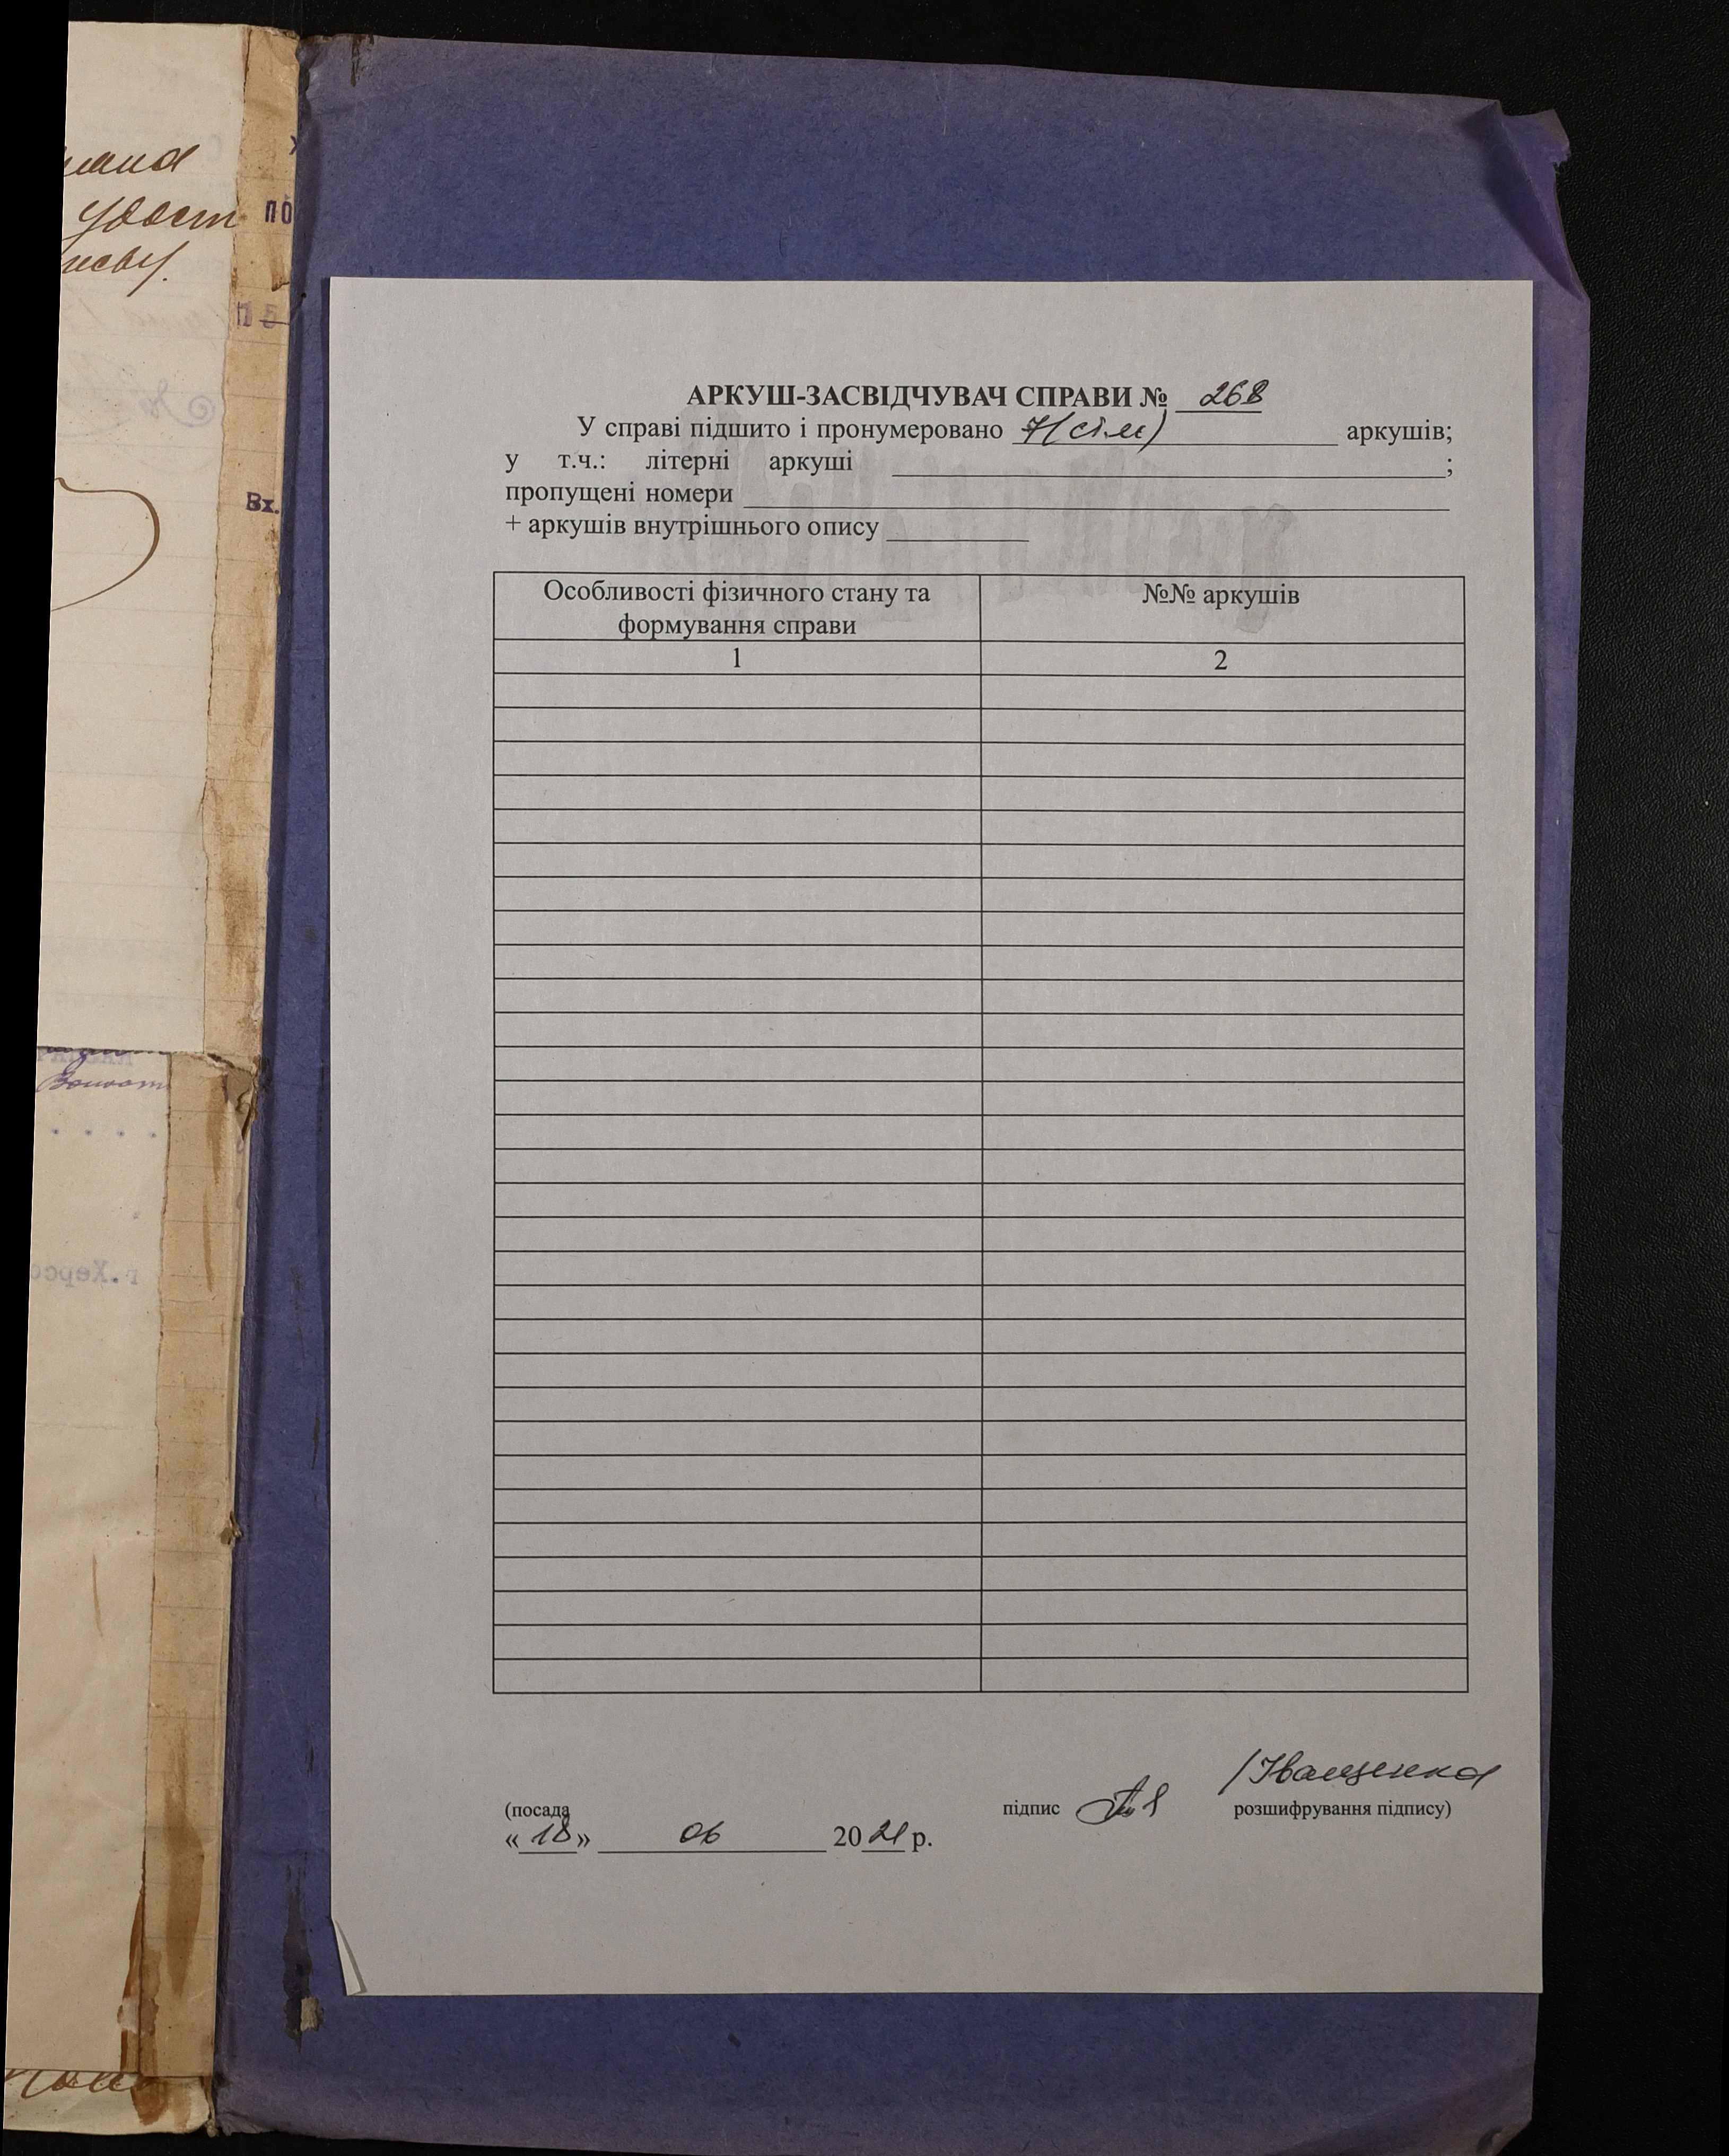 удост
по
15
Вх.
г.Херсо
АРКУШ-ЗАСВІДЧУВАЧ СПРАВИ № 268
У справі підшито і пронумеровано 7(сім) аркушів;
у т.ч.: літерні аркуші ;
пропущені номери
+ аркушів внутрішнього опису
Особливості фізичного стану та формування справи
№№ аркушів
1 2
(посада підпис розшифрування підпису)
/Іващенко
«18» 06 2021 р.